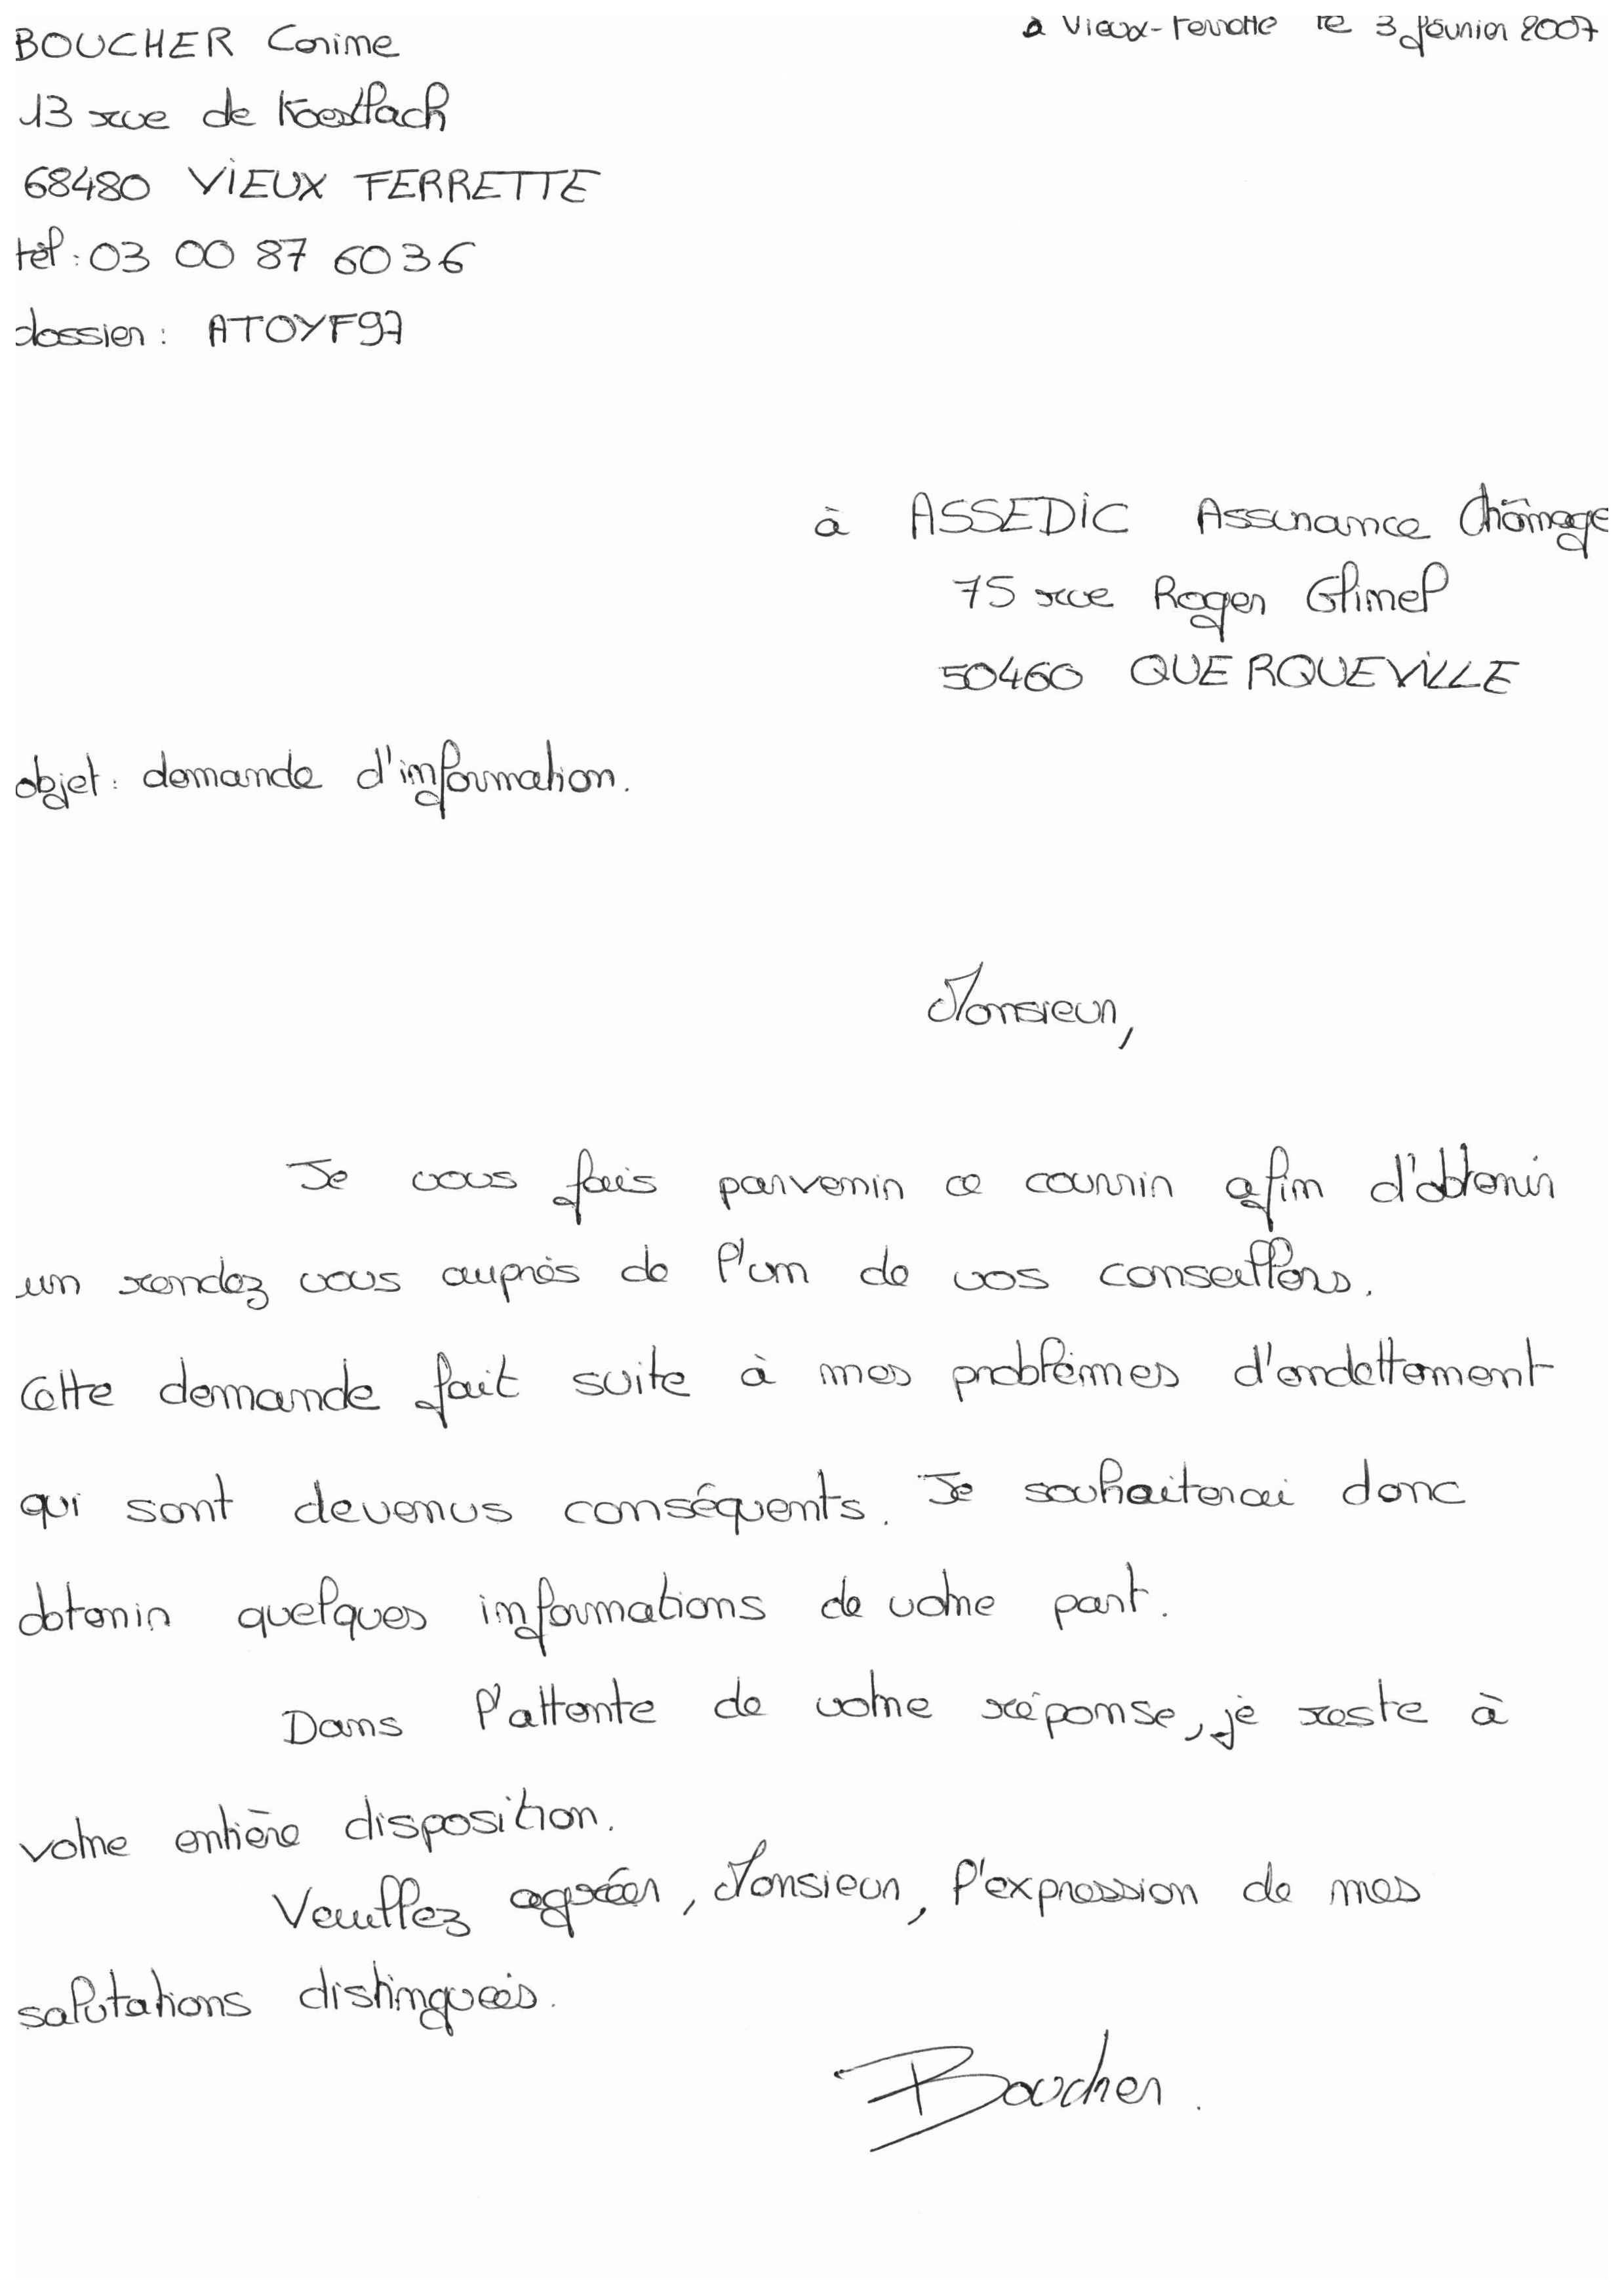 BOUCHER Corinne
à Vieux-Ferrette le 3 février 2007
13 rue de Koestlach
68480 VIEUX FERRETTE
tél : 03 00 87 60 36
dossier : ATOYF97
à ASSEDIC Assurance Chômage
75 rue Roger Glinel
50460 QUERQUEVILLE
objet : demande d'information.
Monsieur,
Je vous fais parvenir ce courrir afin d'obtenir
un rendez vous auprès de l'un de vos conseillers.
Cette demande fait suite à mes problèmes d'endettement
qui sont devenus conséquents. Je souhaiterai donc
obtenir quelques informations de votre part.
Dans l'attente de votre réponse, je reste à
votre entière disposition.
Veuillez agréer, Monsieur, l'expression de mes
salutations distinguées.
Boucher.